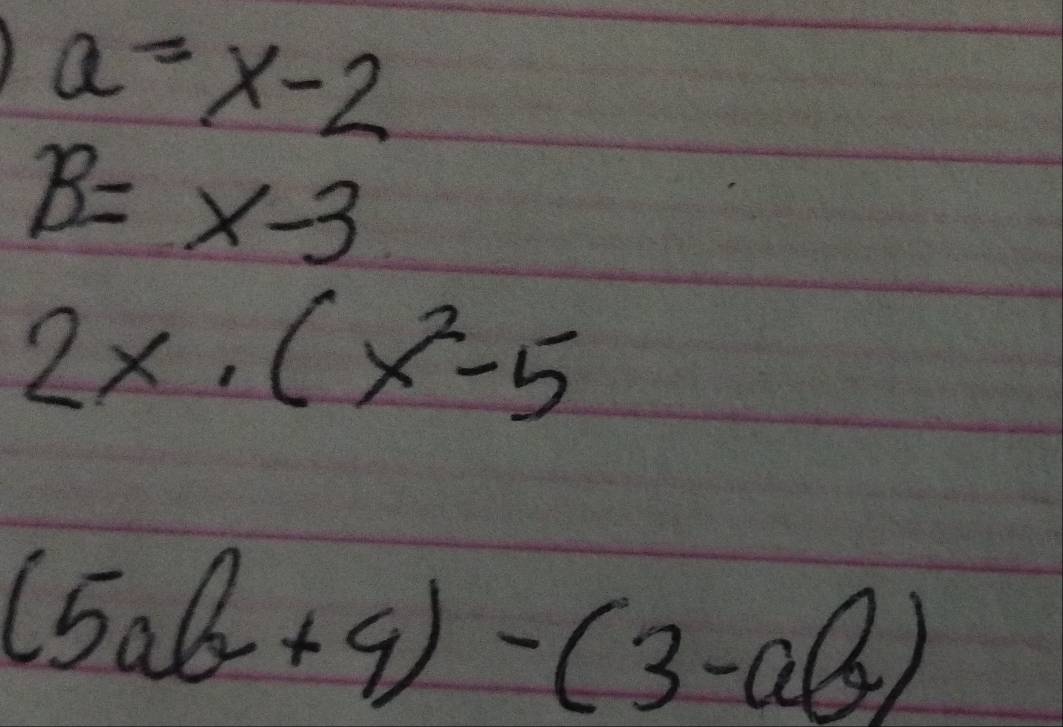 ) a = x - 2
B = x - 3
2x . (x² - 5
(5ab + 9) - (3 - ab)